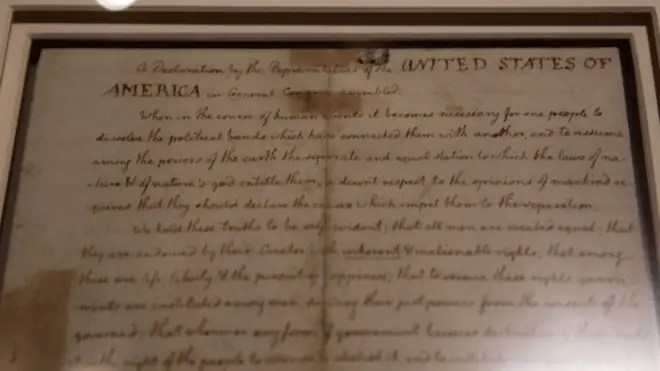 A Declaration by the Representatives of the UNITED STATES OF
AMERICA in General Congress assembled.
When in the course of human events it becomes necessary for one people to
dissolve the political bands which have connected them with another, and to assume
among the powers of the earth the separate and equal station to which the laws of na-
-ture & of nature's god entitle them, a decent respect to the opinions of mankind re-
-quires that they should declare the causes which impel them to the separation.
We hold these truths to be self evident; that all men are created equal; that
they are endowed by their Creator with inherent & inalienable rights; that among
these are life, liberty & the pursuit of happiness; that to secure these rights govern-
-ments are instituted among men, deriving their just powers from the consent of the
governed; that whenever any form of government becomes destructive of these
the right of the people to alter or to abolish it, and to institute